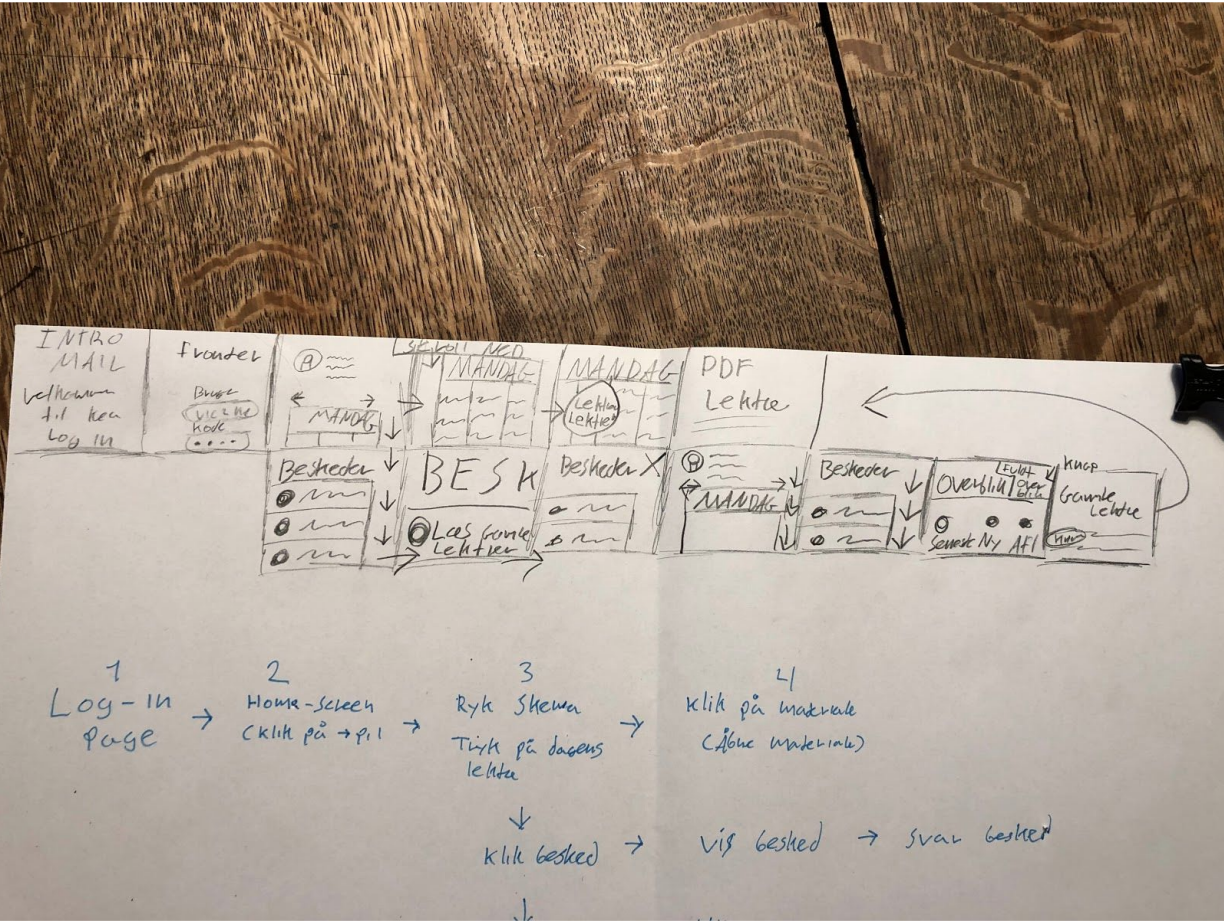 INTRO
MAIL
Velkommen
til hen
Log In
Fronter
Bruge
Kode
MANDAG
Scroll NED
MANDAG
MANDAG
Lektier
PDF
Lektie
Beskeder
BESK
Læs Gamle
Lektier
Beskeder X
MANDAG
Beskeder
Overblik
Fuldt
Over
blik
Senest Ny Afl
Knap
Gamle
Lektie
1
Log-in
Page
2
Home-Screen
(Klik på → pil
3
Ryk Skema
Tryk på dagens
lektie
4
Klik på materiale
(Åbne materiale)
Klik besked
Vis besked
Svar besked